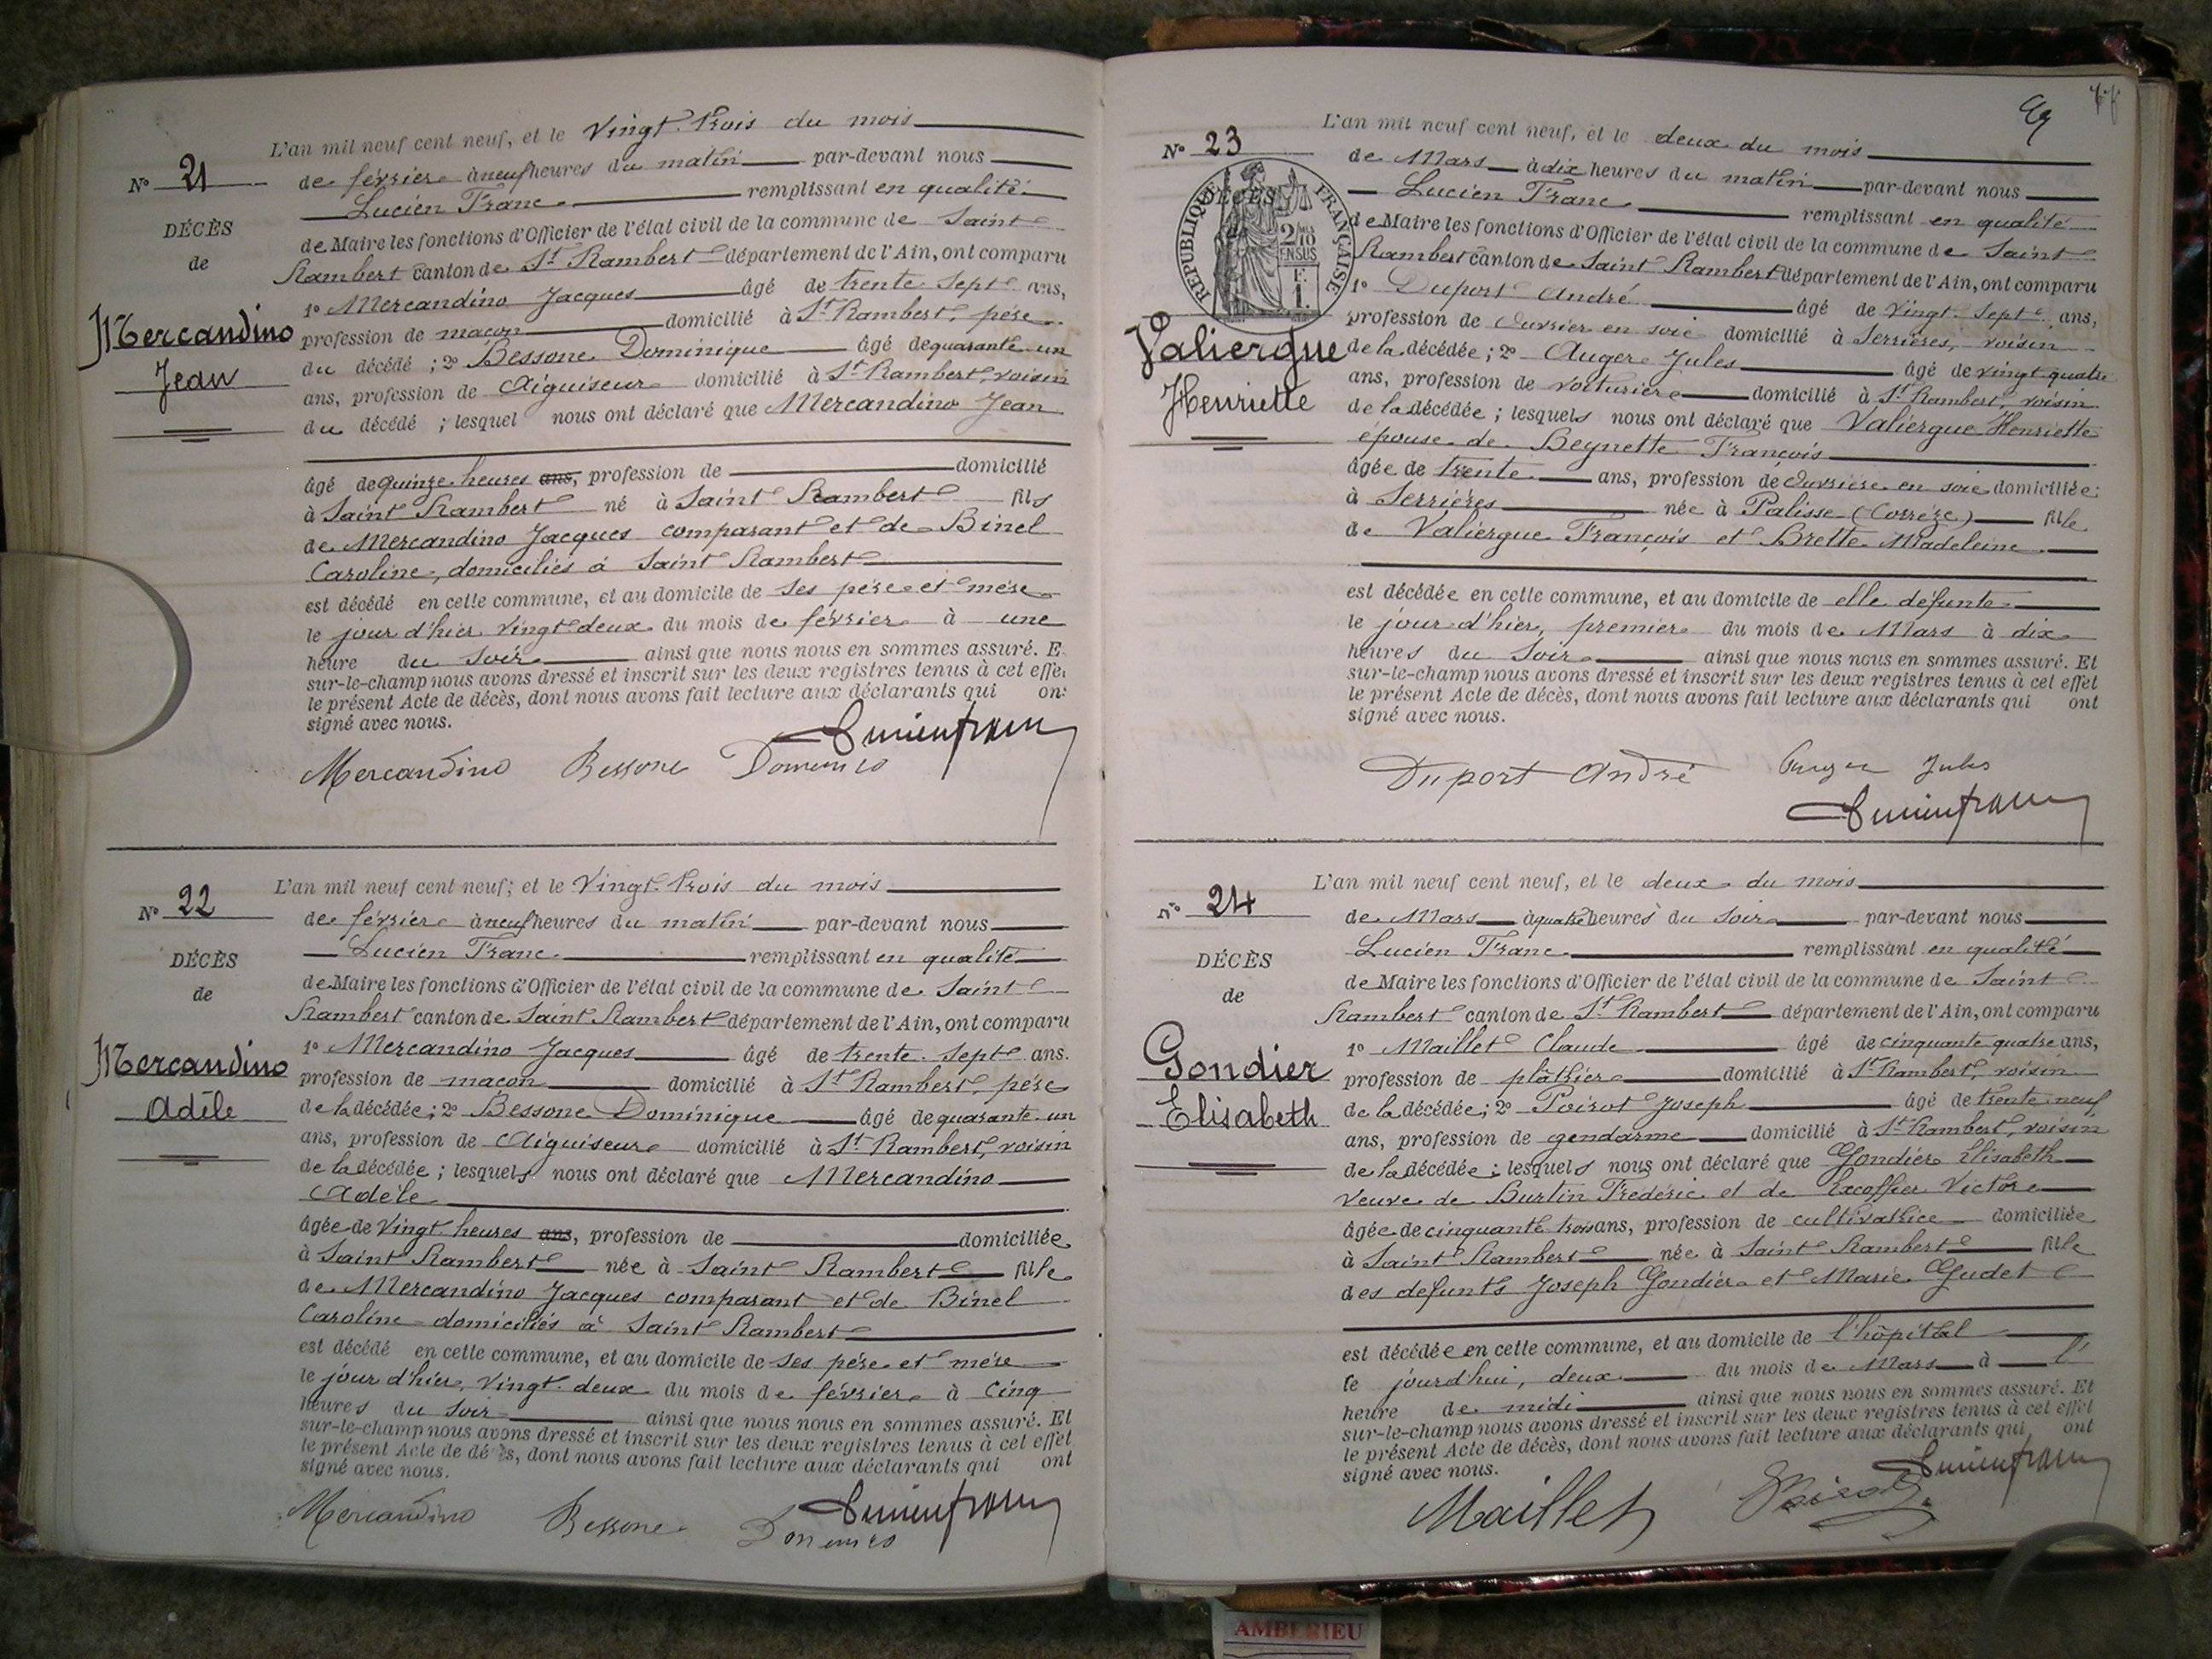 N° 21
DÉCÈS
de
Mercandino
Jean
L'an mil neuf cent neuf, et le vingt-trois du mois
de février à neuf heures du matin par-devant nous
Lucien Franc remplissant en qualité
de Maire les fonctions d'Officier de l'état civil de la commune de Saint
Rambert canton de St Rambert département de l'Ain, ont comparu
1° Mercandino Jacques âgé de trente-sept ans,
profession de maçon domicilié à St Rambert, père
du décédé ; 2° Bessone Dominique âgé de quarante-un
ans, profession de Aiguiseur domicilié à St Rambert, voisin
du décédé ; lesquel nous ont déclaré que Mercandino Jean
âgé de quinze heures ans, profession de domicilié
à Saint Rambert né à Saint Rambert fils
de Mercandino Jacques comparant et de Binel
Caroline, domiciliés à Saint Rambert
est décédé en cette commune, et au domicile de ses père et mère
le jour d'hier vingt-deux du mois de février à une
heure du soir ainsi que nous nous en sommes assuré. E
sur-le-champ nous avons dressé et inscrit sur les deux registres tenus à cet effe
le présent Acte de décès, dont nous avons fait lecture aux déclarants qui on
signé avec nous.
Mercandino Bessone
N° 22
DÉCÈS
de
Mercandino
Adèle
L'an mil neuf cent neuf; et le vingt-trois du mois
de février à neuf heures du matin par-devant nous
Lucien Franc remplissant en qualité
de Maire les fonctions d'Officier de l'état civil de la commune de Saint
Rambert canton de Saint Rambert département de l'Ain, ont comparu
1° Mercandino Jacques âgé de trente-sept ans.
profession de maçon domicilié à St Rambert, père
de la décédée ; 2° Bessone Dominique âgé de quarante-un
ans, profession de Aiguiseur domicilié à St Rambert, voisin
de la décédée ; lesquels nous ont déclaré que Mercandino
Adèle
âgée de vingt heures ans, profession de domiciliée
à Saint Rambert née à Saint Rambert fille
de Mercandino Jacques comparant et de Binel
Caroline domiciliés à Saint Rambert
est décédé en cette commune, et au domicile de ses père et mère
le jour d'hier, vingt-deux du mois de février à cinq
heures du soir ainsi que nous nous en sommes assuré. Et
sur-le-champ nous avons dressé et inscrit sur les deux registres tenus à cet effet
le présent Acte de décès, dont nous avons fait lecture aux déclarants qui ont
signé avec nous.
Mercandino Bessone
N° 23
DÉCÈS
RÉPUBLIQUE FRANÇAISE
2/10 EN SUS
F. 1.
Valiergue
Henriette
L'an mil neuf cent neuf, et le deux du mois
de Mars à dix heures du matin par-devant nous
Lucien Franc remplissant en qualité
de Maire les fonctions d'Officier de l'état civil de la commune de Saint
Rambert canton de Saint Rambert département de l'Ain, ont comparu
1° Duport André âgé de vingt-sept ans,
profession de Ouvrier en soie domicilié à Serrières, voisin
de la décédée ; 2° Auger Jules âgé de vingt-quatre
ans, profession de voiturier domicilié à St Rambert, voisin
de la décédée ; lesquels nous ont déclaré que Valiergue Henriette
épouse de Beynette François
âgée de trente ans, profession de Ouvrière en soie domiciliée
à Serrières née à Palisse (Corrèze) fille
de Valiergue François et Brette Madeleine
est décédée en cette commune, et au domicile de elle défunte
le jour d'hier, premier du mois de Mars à dix
heures du soir ainsi que nous nous en sommes assuré. Et
sur-le-champ nous avons dressé et inscrit sur les deux registres tenus à cet effet
le présent Acte de décès, dont nous avons fait lecture aux déclarants qui ont
signé avec nous.
Duport André Auger Jules
N° 24
DÉCÈS
de
Gondier
Elisabeth
L'an mil neuf cent neuf, et le deux du mois
de Mars à quatre heures du soir par-devant nous
Lucien Franc remplissant en qualité
de Maire les fonctions d'Officier de l'état civil de la commune de Saint
Rambert canton de St Rambert département de l'Ain, ont comparu
1° Maillet Claude âgé de cinquante quatre ans,
profession de plâtrier domicilié à St Rambert, voisin
de la décédée ; 2° Poirot Joseph âgé de trente-neuf
ans, profession de gendarme domicilié à St Rambert, voisin
de la décédée ; lesquels nous ont déclaré que Gondier Elisabeth
veuve de Burtin Frédéric et de Excoffier Victor
âgée de cinquante trois ans, profession de cultivatrice domiciliée
à Saint Rambert née à Saint Rambert fille
des défunts Joseph Gondier et Marie Gudet
est décédée en cette commune, et au domicile de l'hôpital
le jourd'hui, deux du mois de Mars à l'
heure de midi ainsi que nous nous en sommes assuré. Et
sur-le-champ nous avons dressé et inscrit sur les deux registres tenus à cet effet
le présent Acte de décès, dont nous avons fait lecture aux déclarants qui ont
signé avec nous.
Maillet Poirot
AMBERIEU